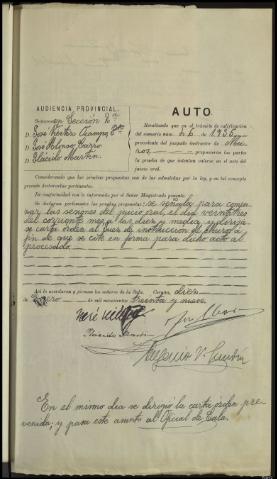 AUDIENCIA PROVINCIAL
Sección 2ª
D. José Montero Ocampo
D. José Molinos
D. Plácido Martín
AUTO
Resultando que en el trámite de calificación
del sumario núm. 6 de 1936
procedente del juzgado instructor de
propusieron las partes
la prueba de que intentan valerse en el acto del
juicio oral.
Considerando que las pruebas propuestas son de las admitidas por la ley, y en tal concepto
procede declararlas pertinentes.
En conformidad con lo informado por el Señor Magistrado ponente
Se declaran pertinentes las pruebas propuestas: se señala para comen
zar las sesiones del juicio oral, el día veintitres
del corriente mes a las diez y media expídase
la carta orden al Juez de instrucción de
fin de que se cite en forma para dicho acto al
procesado
Así lo acordaron y firman los señores de la Sala. diez
de Enero de mil novecientos treinta y nueve.
En el mismo día se dirigió la carta orden pre
venida; y pasa este asunto al Oficial de Sala.